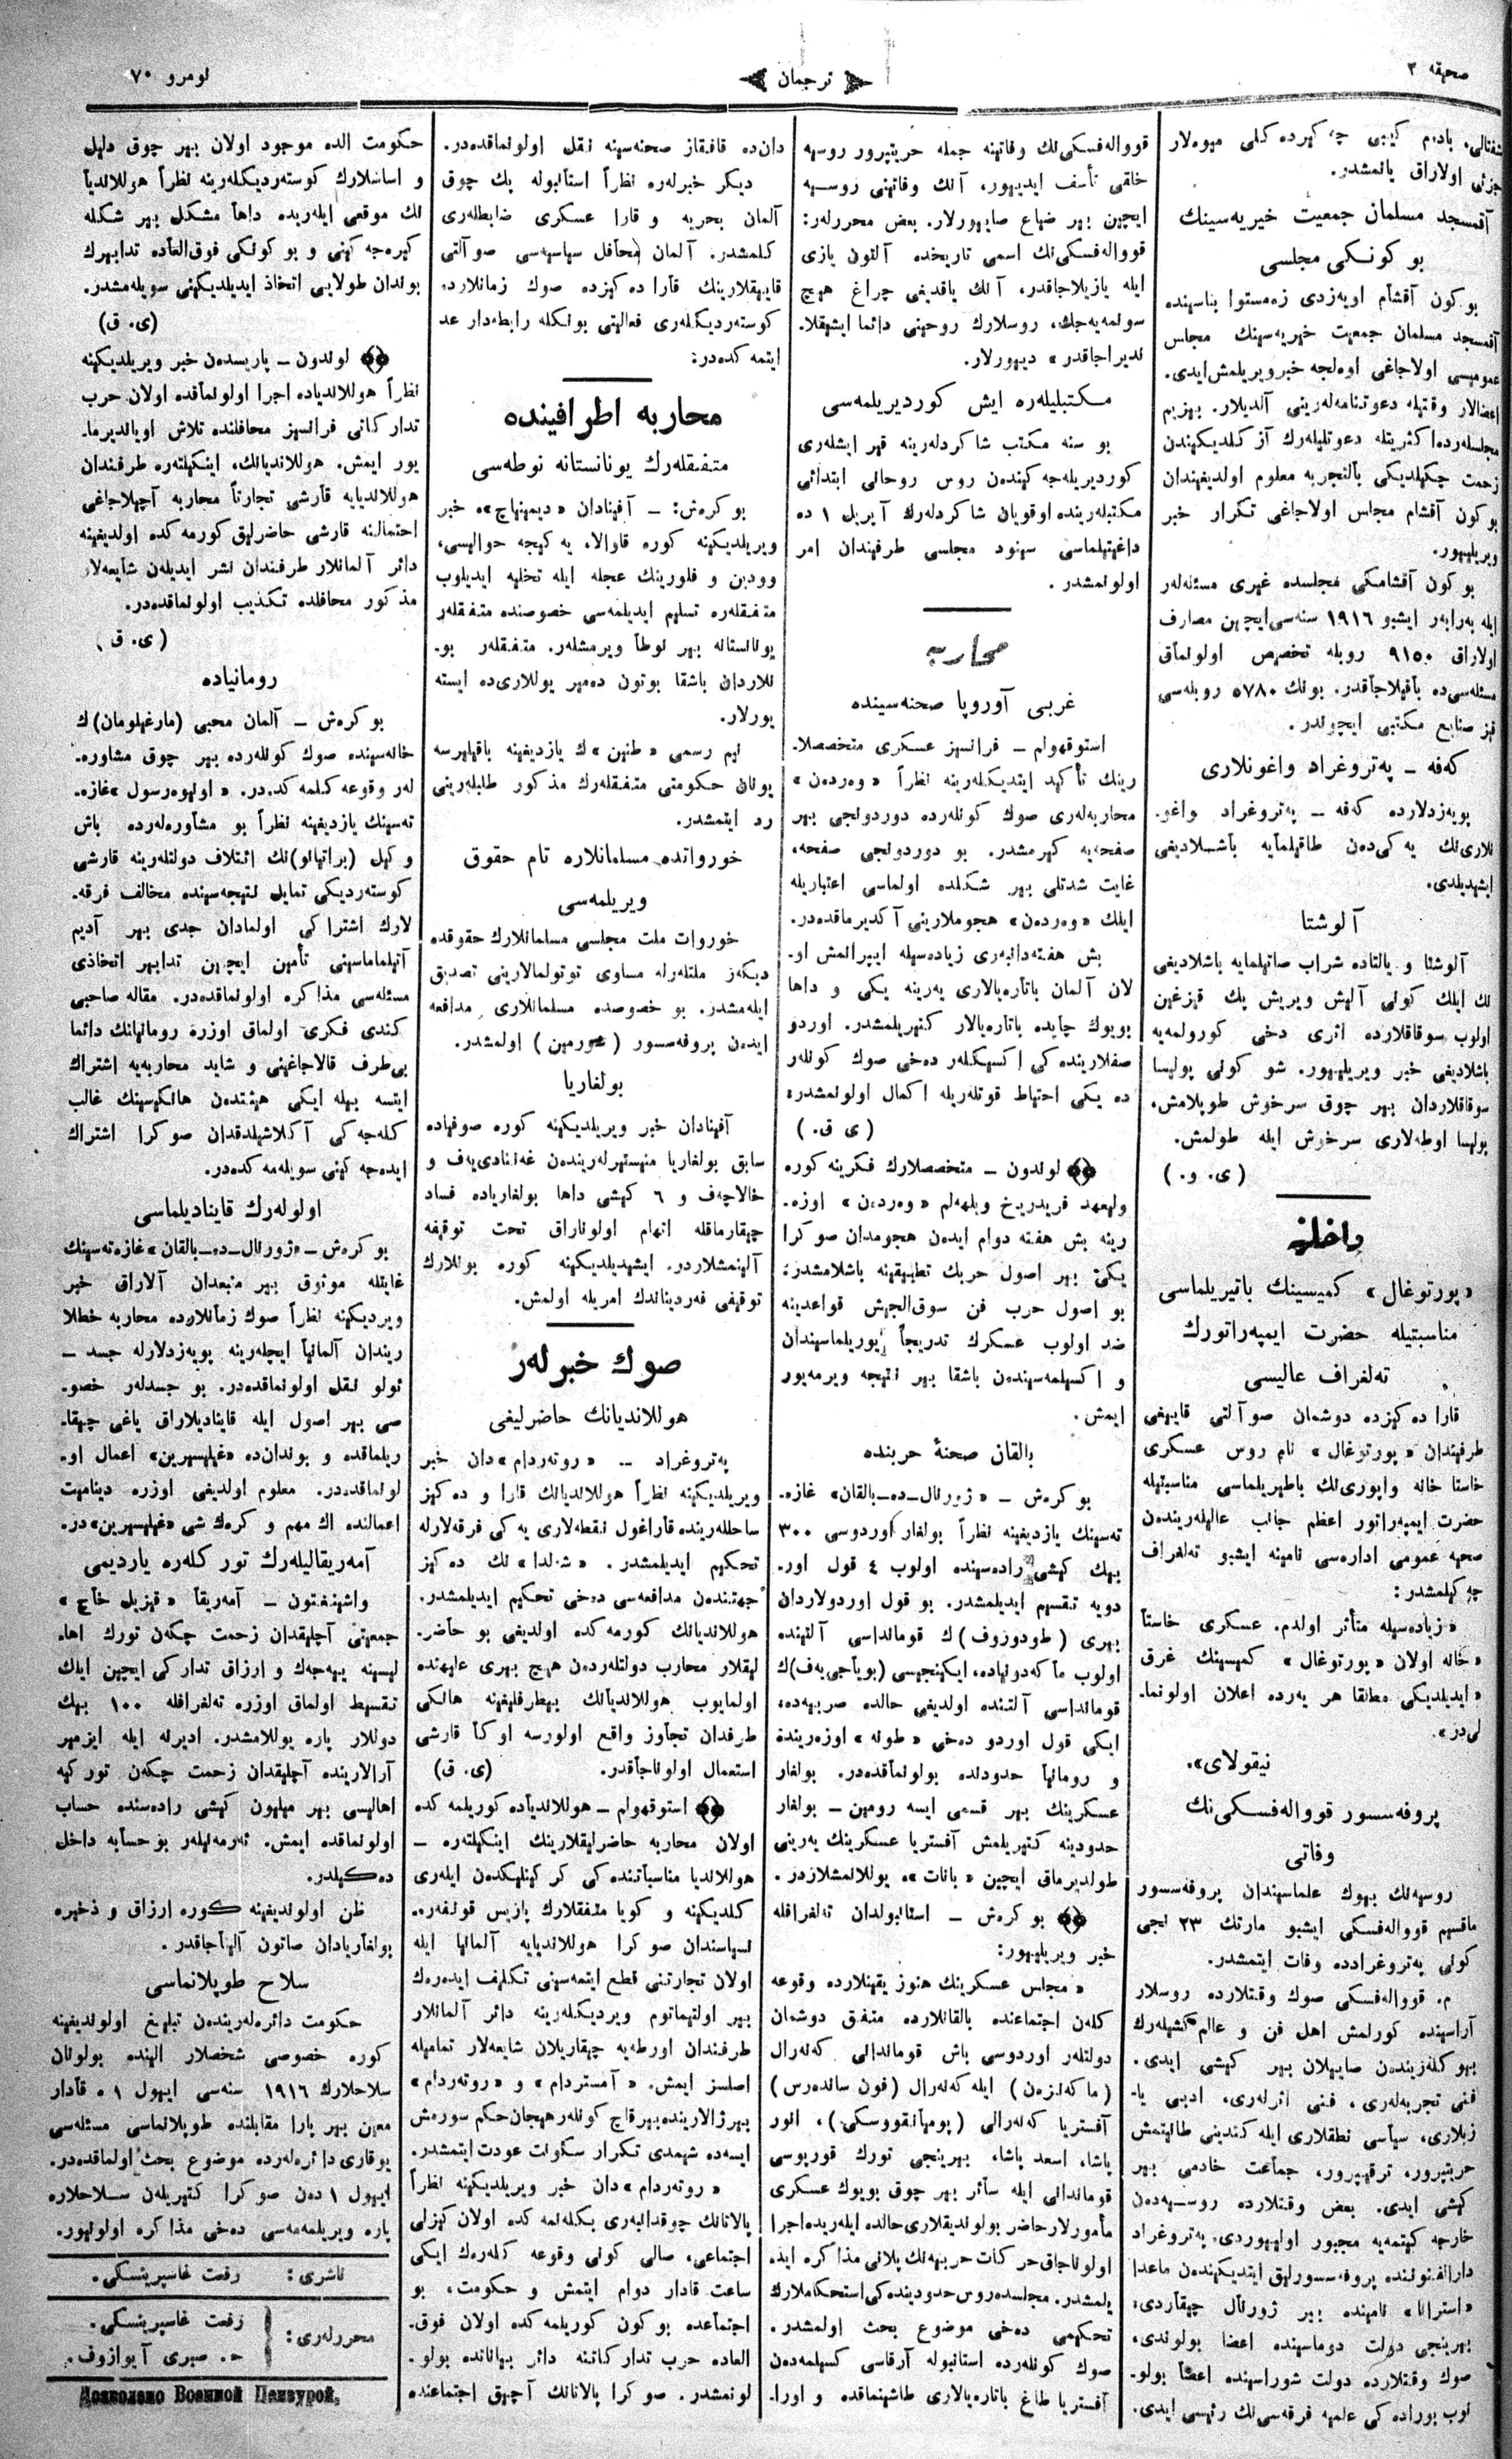 صحيفه ٢
ترجمان
نومرو ٧٠
شفتالی، بادم كیبی چه كیرده كلی میوه‌لار
جزئی اولاراق یانمشدر.
آقمسجد مسلمان جمعیت خیریه‌سینك
بو كونكی مجلسی
بو كون آقشام اویه‌زدی زه‌مستوا بناسینده
آقمسجد مسلمان جمعیت خیریه‌سینك مجلس
عمومیسی اولاجاغی اوه‌لجه خبر ویریلمش ایدی.
اعضالار وقتیله دعوتنامه‌لەرینی آلدیلار. بیزیم
مجلسلەرده اكثریتله دعوتلیلەرك آز كلدیكیندن
زحمت چكیلدیكی بالتجربه معلوم اولدیغیندان
بو كون آقشام مجلس اولاجاغی تكرار خبر
ویریلییور.
بو كون آقشامكی مجلسده غیری مسئله‌لەر
ایله بەرابەر ایشبو ١٩١٦ سنه‌سی ایچین مصارف
اولاراق ٩١٥٠ روبله تخصیص اولونماق
مسئله‌سی ده باقیلاجاقدر. بونك ٥٧٨٠ روبله‌سی
قیز صنایع مكتبی ایچوندر.
كه‌فه – په‌تروغراد واغونلاری
بویه‌زدلارده كه‌فه – په‌تروغراد واغو-
نلاری‌نك یه‌كی‌دەن طاقیلمایه باشلادیغی
ایشیدیلدی.
آلوشتا
آلوشتا و یالتاده شراب صاتیلمایه باشلادیغی
نك ایلك كونی آلیش ویریش پك قیزغین
اولوب سوقاقلارده اثری دخی كورولمه‌یه
باشلادیغی خبر ویریلییور. شو كونی پولیسا
سوقاقلاردان بیر چوق سرخوش طوپلامش،
پولیسا اوطه‌لاری سرخوش ایله طولمش.
(ی. و.)
داخلیه
«پورتوغال» كمیسینك باتیریلماسی
مناسبتیله حضرت ایمپه‌راتورك
ته‌لغراف عالیسی
قارا دەكیزده دوشمان صو آلتی قاییغی
طرفیندان «پورتوغال» نام روس عسكری
خاستا خانه واپوری‌نك باطیریلماسی مناسبتیله
حضرت ایمپه‌راتور اعظم جانب عالیلەریندەن
صحیه عمومی اداره‌سی نامینه ایشبو ته‌لغراف
چه‌كیلمشدر:
«زیاده‌سیله متأثر اولدم. عسكری خاستا
«خانه اولان «پورتوغال» كمیسینك غرق
«ایدیلدیكی مطلقا هر یه‌رده اعلان اولونما-
لی‌در».
نیقولای».
پروفه‌سسور قوواله‌فسكی‌نك
وفاتی
روسیه‌نك بیوك علماسیندان پروفه‌سسور
ماقسیم قوواله‌فسكی ایشبو مارتك ٢٣ نجی
كونی په‌تروغرادده وفات ایتمشدر.
م. قوواله‌فسكی صوك وقتلارده روسلار
آراسینده كورلمش اهل فن و عالم كشیلەرك
بیوكلەریندەن صاییلان بیر كیشی ایدی.
فنی تجربه‌لەری، فنی اثرلەری، ادبی یا-
زیلاری، سیاسی نطقلاری ایله كندینی طانیتمش
حریتپرور، ترقیپرور، جماعت خادمی بیر
كیشی ایدی. بعض وقتلارده روسیه‌دەن
خارجه كیتمه‌یه مجبور اولییوردی. په‌تروغراد
دارالفنوننده پروفه‌سسورلیق ایتدیكیندەن ماعدا
«استرانا» نامینده بیر ژورنال چیقاردی،
بیرینجی دولت دوماسینده اعضا بولوندی،
صوك وقتلارده دولت شوراسینده اعضا بولو-
نوب بوراده كی علمیه فرقه‌سی‌نك رئیسی ایدی.
قوواله‌فسكی‌نك وفاتینه جمله حریتپرور روسیه
خلقی تأسف ایدییور، آنك وفاتینی روسیه
ایچین بیر ضیاع صاییورلار. بعض محررلەر:
قوواله‌فسكی‌نك اسمی تاریخده آلتون یازی
ایله یازیلاجاقدر، آنك یاقدیغی چراغ هیچ
سونمه‌یه‌جك، روسلارك روحینی دائما ایشیقلا-
ندیراجاقدر» دییورلار.
مكتبلیلەره ایش كوردیریلمه‌سی
بو سنه مكتب شاكردلەرینه قیر ایشلەری
كوردیریله‌جه‌كیندەن روس روحانی ابتدائی
مكتبلەرینده اوقویان شاكردلەرك آپریل ١ ده
داغیتیلماسی سینود مجلسی طرفیندان امر
اولونمشدر.
محاربه
غربی آوروپا صحنه‌سینده
استوقهولم – فرانسیز عسكری متخصصلا-
رینك تأكید ایتدیكلەرینه نظراً «وەردەن»
محاربه‌لەری صوك كونلەرده دوردونجی بیر
صفحه‌یه كیرمشدر. بو دوردونجی صفحه،
غایت شدتلی بیر شكلده اولماسی اعتباریله
ایلك «وەردەن» هجوملارینی آكدیرماقده‌در.
بش هفته‌دانبەری زیاده‌سیله ایپرانمش او-
لان آلمان باتاره‌یالاری یه‌رینه یكی و داها
بویوك چاپده باتاره‌یالار كتیریلمشدر. اوردو
صفلارینده كی اكسیكلەر دەخی صوك كونلەر
ده یكی احتیاط قوتلەریله اكمال اولونمشدر:
(ی ق.)
لوندون – متخصصلارك فكرینه كوره
ولیعهد فریدریخ ویلهه‌لم «وەردەن» اوزه-
رینه بش هفته دوام ایدەن هجومدان صوكرا
یكی بیر اصول حربك تطبیقینه باشلامشدر:
بو اصول حرب فن سوق‌الجیش قواعدینه
ضد اولوب عسكرك تدریجاً یوریلماسیندان
و اكسیلمه‌سیندەن باشقا بیر نتیجه ویرمه‌یور
ایمش.
بالقان صحنهٔ حربنده
بوكرەش – «ژورنال–ده–بالقان» غازه-
ته‌سینك یازدیغینه نظراً بولغار اوردوسی ٣٠٠
بیك كیشی راده‌سینده اولوب ٤ قول اور-
دویه تقسیم ایدیلمشدر. بو قول اوردولاردان
بیری (طودوروف)ك قوماندا‌سی آلتینده
اولوب ماكه‌دونیاده، ایكینجیسی (بویاجی‌یه‌ف)ك
قوماندا‌سی آلتنده اولدیغی حالده صربیه‌ده،
ایكی قول اوردو دەخی «طونه» اوزەرینده
و رومانیا حدودنده بولونماقده‌در. بولغار
عسكرینك بیر قسمی ایسه رومین – بولغار
حدودینه كتیریلمش آفستریا عسكرینك یه‌رینی
طولدیرماق ایچین «بانات»ه یوللانمشلاردر.
بوكرەش – استانبولدان ته‌لغرافله
خبر ویریلییور:
«مجلس عسكرینك هنوز یقینلارده وقوعه
كلەن اجتماعنده بالقانلارده متفق دوشمان
دولتلەر اوردوسی باش قوماندانی كه‌نه‌رال
(ماكه‌نزەن) ایله كه‌نه‌رال (فون ساندەرس)
آفستریا كه‌نه‌رالی (پومیانقووسكی)، انور
پاشا، اسعد پاشا، بیرینجی تورك قورپوسی
قوماندانی ایله سائر بیر چوق بویوك عسكری
مأمورلار حاضر بولوندیقلاری حالده ایلەریده اجرا
اولوناجاق حركات حربیه‌نك پلانی مذاكره ایده
یلمشدر. مجلسده روس حدودینده كی استحكاملارك
تحكیمی دەخی موضوع بحث اولمشدر.
صوك كونلەرده استانبوله آرقاسی كسیلمه‌دەن
آفستریا طاغ باتاره‌یالاری طاشینماقده و اورا-
دان‌ده قافقاز صحنه‌سینه نقل اولونماقده‌در.
دیكر خبرلەره نظراً استانبوله پك چوق
آلمان بحریه و قارا عسكری ضابطلەری
كلمشدر. آلمان محافل سیاسیه‌سی صو آلتی
قاییقلارینك قارا دەكیزده صوك زمانلارده
كوستەردیكلەری فعالیتی بونكله رابطه‌دار عد
ایتمه‌كده‌در:
محاربه اطرافینده
متفقلەرك یونانستانه نوطه‌سی
بوكرەش: – آفینادان «دیمنیاچ»ه خبر
ویریلدیكینه كوره قاوالا، یه‌كیجه حوالیسی،
وودین و فلورینك عجله ایله تخلیه ایدیلوب
متفقلەره تسلیم ایدیلمه‌سی خصوصنده متفقلەر
یونانستانه بیر نوطا ویرمشلەر. متفقلەر بو-
نلاردان باشقا بوتون دەمیر یوللاری‌ده ایسته
یورلار.
نیم رسمی «طنین»ك یازدیغینه باقیلیرسه
یونان حكومتی متفقلەرك مذكور طلبلەرینی
رد ایتمشدر.
خورواتده مسلمانلاره تام حقوق
ویریلمه‌سی
خوروات ملت مجلسی مسلمانلارك حقوقده
دیكەر ملتلەرله مساوی توتولمالارینی تصدیق
ایله‌مشدر. بو خصوصده مسلمانلاری مدافعه
ایدەن پروفه‌سسور (هورمین) اولمشدر.
بولغاریا
آفینادان خبر ویریلدیكینه كوره صوفیاده
سابق بولغاریا مینستیرلەریندەن غه‌ننادی‌یه‌ف و
خالاچه‌ف و ٦ كیشی داها بولغاریاده فساد
چیقارماقله اتهام اولوناراق تحت توقیفه
آلینمشلاردر. ایشیدیلدیكینه كوره بونلارك
توقیفی فەردیناندك امریله اولمش.
صوك خبرلەر
هوللاندیانك حاضرلیغی
په‌تروغراد – «روتەردام»دان خبر
ویریلدیكینه نظراً هوللاندیانك قارا و دەكیز
ساحللەرینده قاراغول نقطه‌لاری یه‌كی فرقه‌لارله
تحكیم ایدیلمشدر. «شەلدا»نك دەكیز
جهتندەن مدافعه‌سی دەخی تحكیم ایدیلمشدر.
هوللاندیانك كورمه‌كده اولدیغی بو حاضر-
لیقلار محارب دولتلەردەن هیچ بیری علیهنده
اولمایوب هوللاندیانك بیطرفلیغینه هانكی
طرفدان تجاوز واقع اولورسه اوكا قارشی
استعمال اولوناجاقدر. (ی. ق)
استوقهولم – هوللاندیاده كوریلمه‌كده
اولان محاربه حاضرلیقلارینك اینكیلتەره –
هوللاندیا مناسباتنده كی كركینلیكدەن ایلەری
كلدیكینه و كویا متفقلارك پاریس قونفه‌ره-
نسیاسندان صوكرا هوللاندیایه آلمانیا ایله
اولان تجارتنی قطع ایتمه‌سینی تكلیف ایدەرەك
بیر اولتیماتوم ویردیكلەرینه دائر آلمانلار
طرفندان اورطه‌یه چیقاریلان شایعه‌لار تمامیله
اصلسز ایمش. «آمستردام» و «روتەردام»
بیرژالارینده بیر قاچ كونلەر هیجان حكم سورمش
ایسه‌ده شیمدی تكرار سكونت عودت ایتمشدر.
«روتەردام»دان خبر ویریلدیكینه نظراً
پالاتانك چوقدانبەری بكله‌نمه‌كده اولان كیزلی
اجتماعی، صالی كونی وقوعه كلەرەك ایكی
ساعت قادار دوام ایتمش و حكومت، بو
اجتماعده بو كون كوریلمه‌كده اولان فوق-
العاده حرب تداركاتینه دائر بیاناتده بولو-
نونمشدر. صوكرا پالاتانك آچیق اجتماعنده
حكومت الده موجود اولان بیر چوق دلیل
و اساسلارك كوستەردیكلەرینه نظراً هوللاندیا
نك موقعی ایلەریده داها مشكل بیر شكله
كیره‌جه‌كینی و بو كونكی فوق‌العاده تدابیرك
بوندان طولایی اتخاذ ایدیلدیكینی سویله‌مشدر.
(ی. ق)
لوندون – پاریسدەن خبر ویریلدیكینه
نظراً هوللاندیاده اجرا اولونماقده اولان حرب
تداركاتی فرانسیز محافلنده تلاش اویاندیرما-
یور ایمش. هوللاندیانك، اینكیلتەره طرفندان
هوللاندیایه قارشی تجارتاً محاربه آچیلاجاغی
احتمالنه قارشی حاضرلیق كورمه‌كده اولدیغینه
دائر آلمانلار طرفندان نشر ایدیلەن شایعه‌لار
مذكور محافلده تكذیب اولونماقده‌در.
(ی. ق)
رومانیاده
بوكرەش – آلمان محبی (مارغیلومان)ك
خانه‌سینده صوك كونلەرده بیر چوق مشاوره-
لەر وقوعه كلمه‌كده‌در. «اونیوەرسول» غازه-
ته‌سینك یازدیغینه نظراً بو مشاوره‌لەرده باش
وكیل (براتیانو)نك ائتلاف دولتلەرینه قارشی
كوستەردیكی تمایل نتیجه‌سینده مخالف فرقه-
لارك اشتراكی اولمادان جدی بیر آدیم
آتیلماماسینی تأمین ایچین تدابیر اتخاذی
مسئله‌سی مذاكره اولونماقده‌در. مقاله صاحبی
كندی فكری اولماق اوزره رومانیانك دائما
بی‌طرف قالاجاغینی و شاید محاربه‌یه اشتراك
ایتسه بیله ایكی هیئتدەن هانكیسینك غالب
كله‌جه‌كی آكلاشیلدقدان صوكرا اشتراك
ایده‌جه‌كینی سویله‌مه‌كده‌در.
اولولەرك قاینادیلماسی
بوكرەش – «ژورنال–ده–بالقان» غازه‌ته‌سینك
غایتله موثوق بیر منبعدان آلاراق خبر
ویردیكینه نظراً صوك زمانلارده محاربه خطلا
ریندان آلمانیا ایچلەرینه بویه‌زدلارله جسد –
ئولو نقل اولونماقده‌در. بو جسدلەر خصو-
صی بیر اصول ایله قاینادیلاراق یاغی چیقا-
ریلماقده و بوندان‌ده «غلیسیرین» اعمال او-
لونماقده‌در. معلوم اولدیغی اوزره دینامیت
اعمالنده اك مهم و كرەك شی «غلیسیرین»در.
آمەریقالیلەرك توركلەره یاردیمی
واشینغتون – آمەریقا «قیزیل خاچ»
جمعیتی آچلیقدان زحمت چكەن تورك اها-
لیسینه ییه‌جه‌ك و ارزاق تداركی ایچین ایلك
تقسیط اولماق اوزره ته‌لغرافله ١٠٠ بیك
دوللار پاره یوللامشدر. ادیرنه ایله ایزمیر
آرالارینده آچلیقدان زحمت چكەن توركیه
اهالیسی بیر میلیون كیشی راده‌سنده حساب
اولونماقده ایمش. ئەرمه‌نیلەر بو حسابه داخل
دەكیلدر.
ظن اولوندیغینه كوره ارزاق و ذخیره
بولغاریادان صاتون آلیناجاقدر.
سلاح طوپلانماسی
حكومت دائره‌لەریندەن تبلیغ اولوندیغینه
كوره خصوصی شخصلار الینده بولونان
سلاحلارك ١٩١٦ سنه‌سی اییول ١ه قادار
معین بیر پارا مقابلنده طوپلانماسی مسئله‌سی
یوقاری دائره‌لەرده موضوع بحث اولماقده‌در.
اییول ١دەن صوكرا كتیریلەن سلاحلاره
پاره ویریلمه‌مه‌سی دەخی مذاكره اولونیور.
ناشری: رفعت غاسپرینسكی.
محررلەری: رفعت غاسپرینسكی.
ح. صبری آیوازوف.
Дозволено Военной Цензурой.